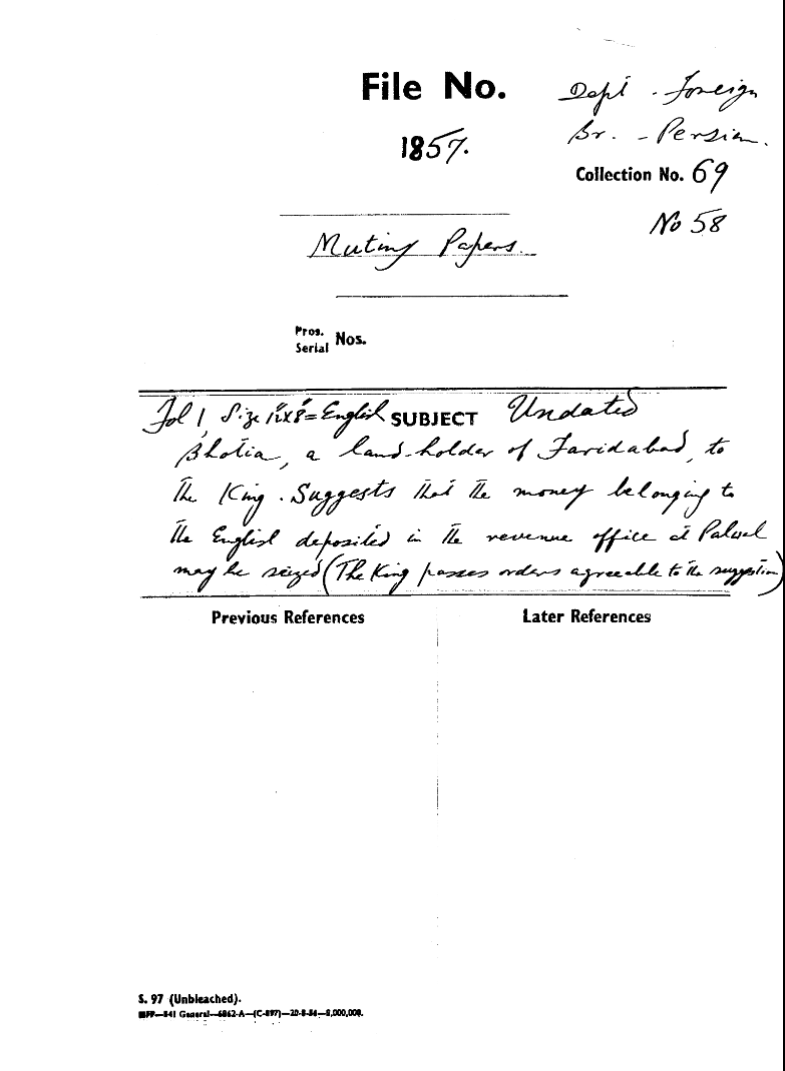 File No.
Dept. Foreign
Br. - Persian.
1857.
Collection No. 69
No 58
Mutiny Papers.
Pros.
Serial Nos.
Fol 1, Size 12"x8" = English SUBJECT Undated
Bhotia, a land-holder of Faridabad, to
the King. Suggests that the money belonging to
the English deposited in the revenue office at Palwal
may be seized (The King passes orders agreeable to the suggestion)
Previous References
Later References
S. 97 (Unbleached).
General—6862-A—(C-897)—20-8-54—5,000,000.